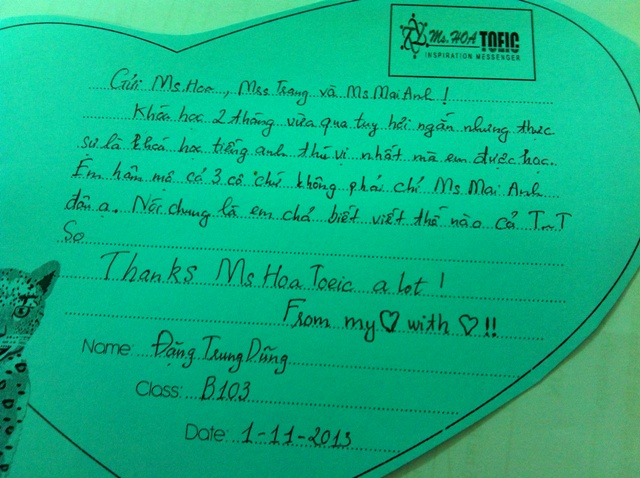 Ms. HOA TOEIC
INSPIRATION MESSENGER
Gửi Ms Hoa, Mss Trang và Ms Mai Anh !
Khóa học 2 tháng vừa qua tuy hơi ngắn nhưng thực
sự là khoá học tiếng anh thú vị nhất mà em được học.
Em hâm mộ cả 3 cô chứ không phải chỉ Ms Mai Anh
đâu ạ. Nói chung là em chả biết viết thế nào cả T_T
So
Thanks Ms Hoa Toeic a lot !
From my ♡ with ♡ !!
Name: Đặng Trung Dũng
Class: B103
Date: 1-11-2013